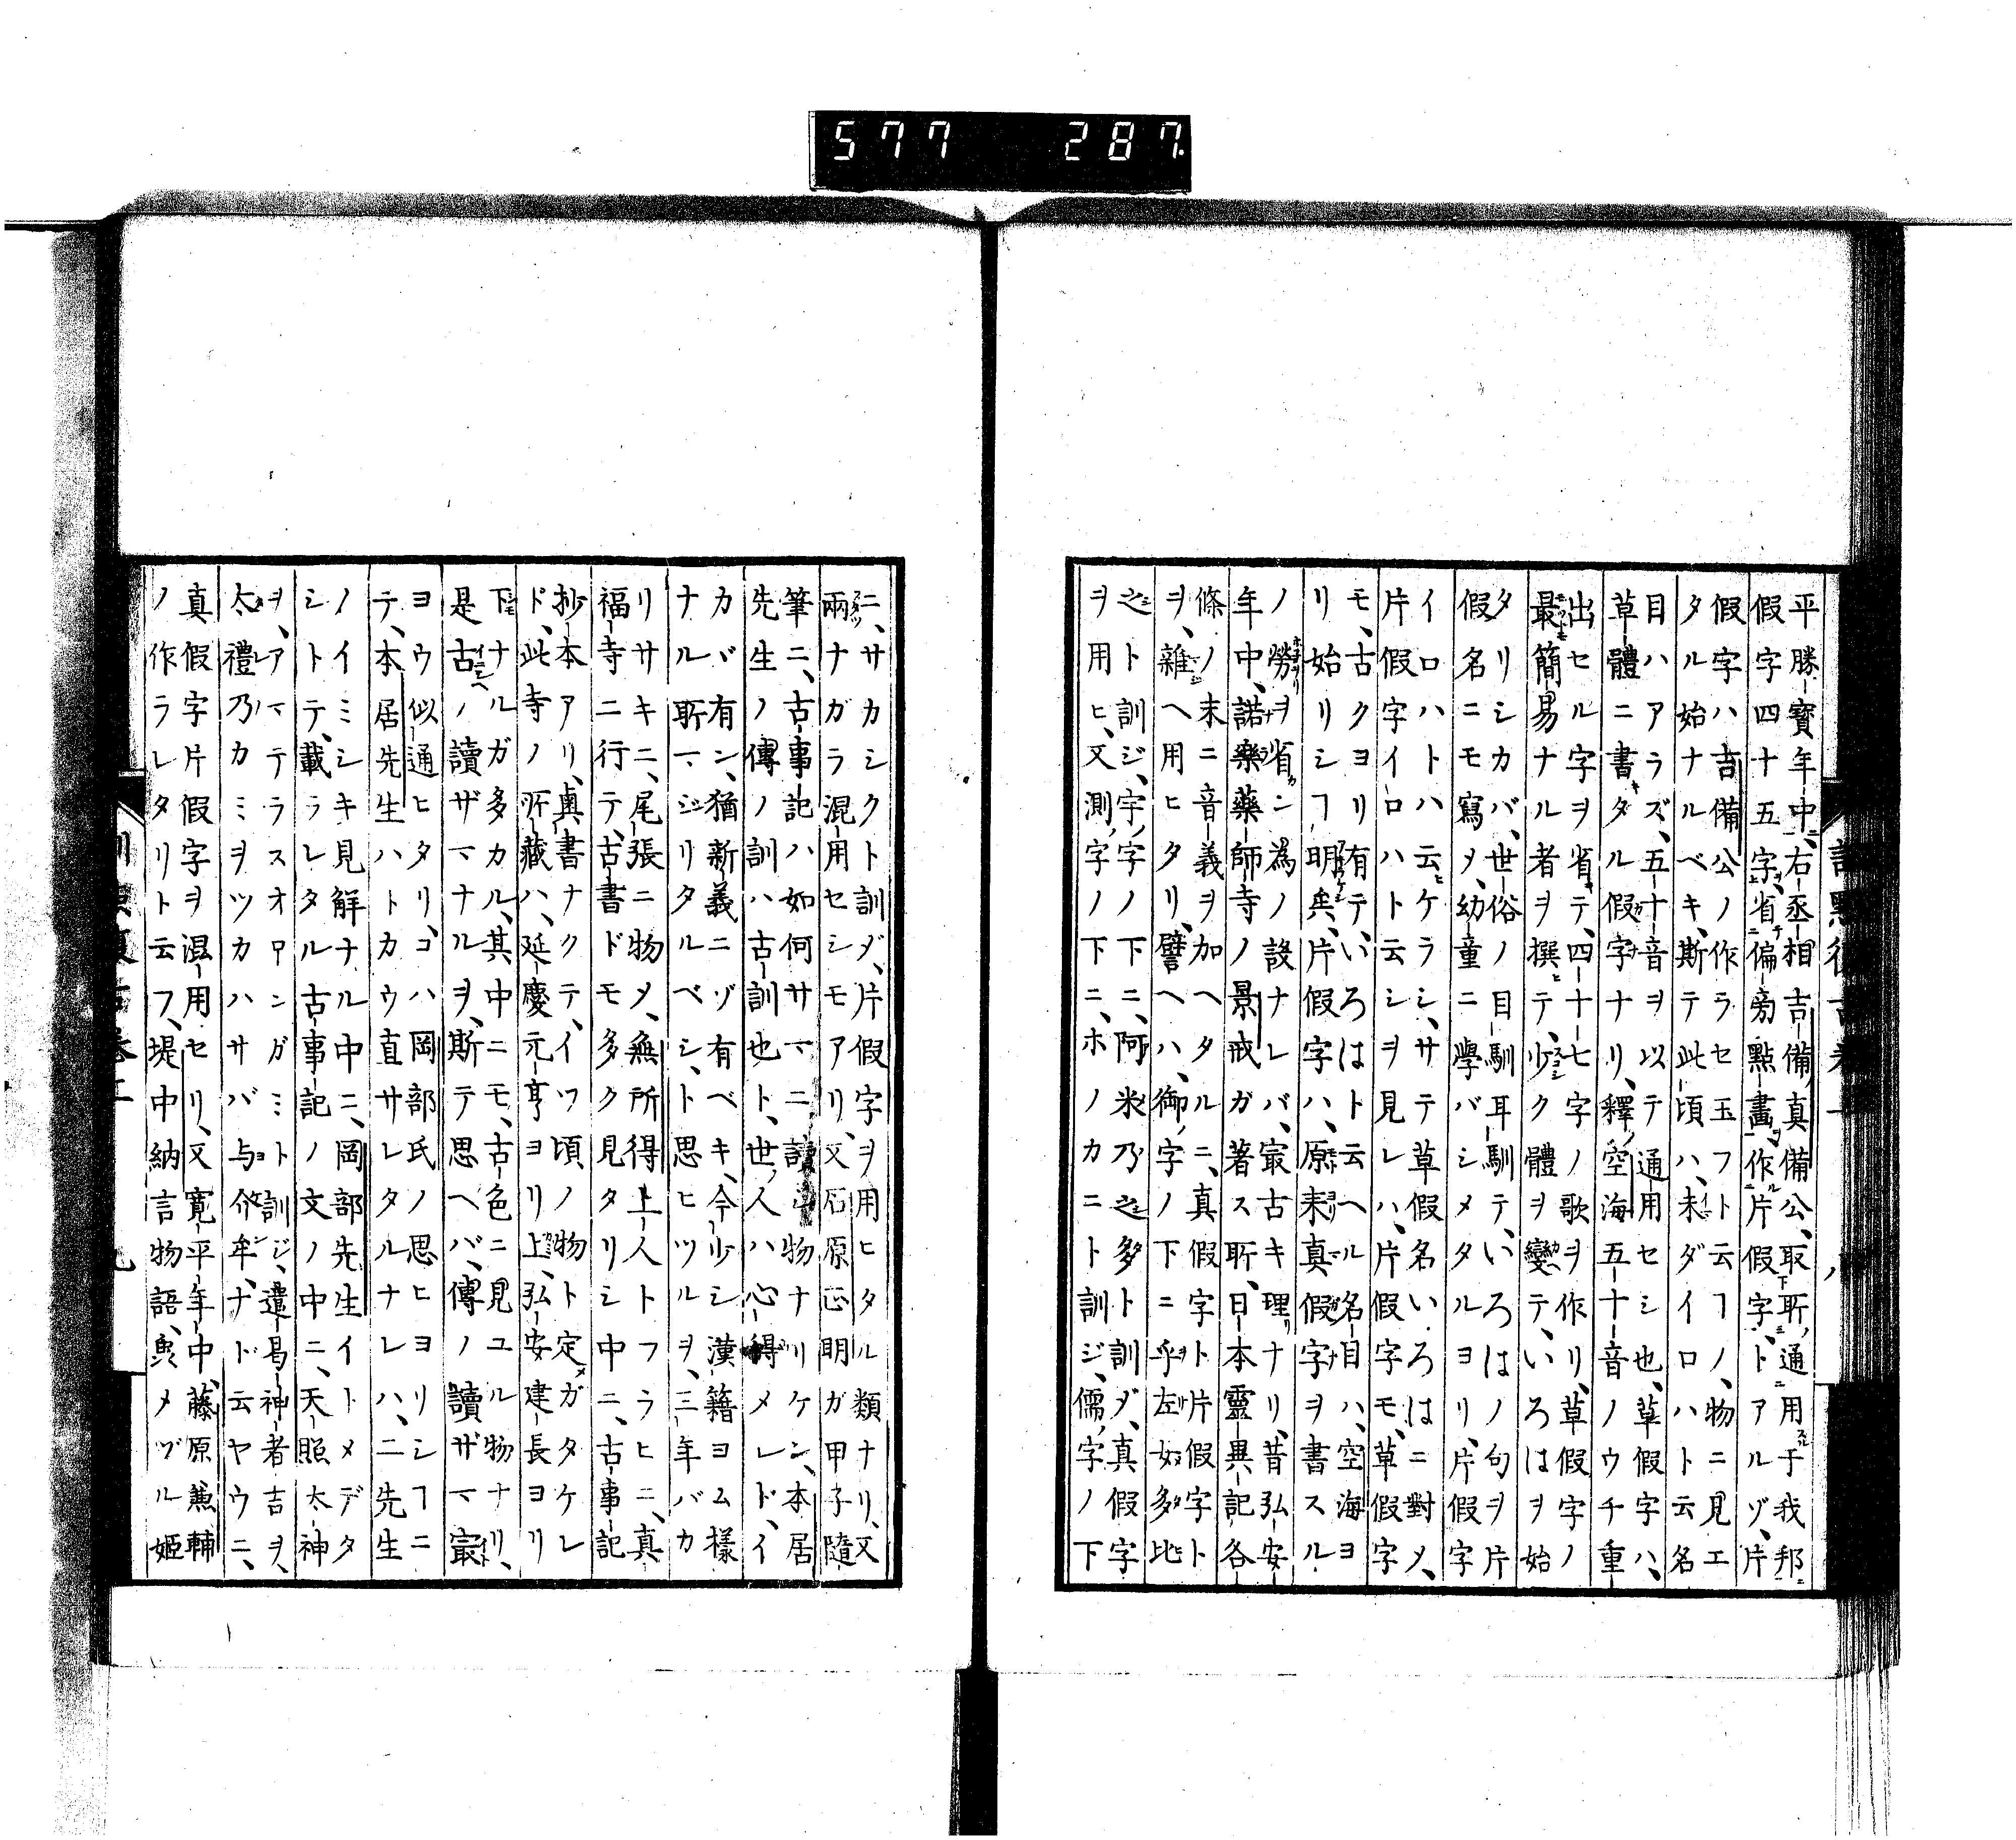 577 287.
平勝寶年中右丞相吉備真備公、取所通用于我邦
假字四十五字、省偏旁點畫作片假字、トアルゾ、片
假字ハ吉備公ノ作ラセ玉フト云フノ、物ニ見エ
タル始ナルベキ、斯テ此頃ハ、未ダイロハト云名
目ハアラズ、五十音ヲ以テ通用セシ也、草假字ハ、
草體ニ書タル假字ナリ、釋空海五十音ノウチ重
出セル字ヲ省テ、四十七字ノ歌ヲ作リ、草假字ノ
最簡易ナル者ヲ撰テ、少ク體ヲ變テ、いろはヲ始
タリシカバ、世俗ノ目馴耳馴テ、いろはノ句ヲ片
假名ニモ寫メ、幼童ニ學バシメタルヨリ、片假字
イロハトハ云ケラシ、サテ草假名いろはニ對メ、
片假字イロハト云シヲ見レハ、片假字モ、草假字
モ、古クヨリ有テ、いろはト云ヘル名目ハ、空海ヨ
リ始リシフ明矣、片假字ハ、原来真假字ヲ書スル
ノ勞ヲ省ン為ノ設ナレバ、冣古キ理ナリ、昔弘安
年中、諾樂藥師寺ノ景戒ガ著ス所、日本靈異記各
條ノ末ニ音義ヲ加ヘタルニ、真假字ト片假字ト
ヲ、雜ヘ用ヒタリ、譬ヘハ、御字ノ下ニ乎左女多比
之ト訓ジ、宇字ノ下ニ、阿米乃之多ト訓ダ、真假字
ヲ用ヒ、又測字ノ下ニ、ホノカニト訓ジ、儒字ノ下
ニ、サカシクト訓ダ、片假字ヲ用ヒタル類ナリ、又
兩ナガラ混用セシモアリ、又石原正明ガ甲子隨
筆ニ、古事記ハ如何サマニ讀シ物ナリケン、本居
先生ノ傳ノ訓ハ古訓也ト、世人ハ心得メレド、イ
カバ有ン、猶新義ニゾ有ベキ、今少シ漢籍ヨム様
ナル所マジリタルベシ、ト思ヒツルヲ、三年バカ
リサキニ、尾張ニ物メ、無所得上人トフラヒニ、真
福寺ニ行テ、古書ドモ多ク見タリシ中ニ、古事記
抄本アリ、奥書ナクテ、イツ頃ノ物ト定ガタケレ
ド、此寺ノ所藏ハ、延慶元亨ヨリ上、弘安建長ヨリ
下ナルガ多カル、其中ニモ、古色ニ見ユル物ナリ、
是古ノ讀ザマナルヲ、斯テ思ヘバ、傳ノ讀ザマ冣
ヨウ似通ヒタリ、コハ岡部氏ノ思ヒヨリシフニ
テ、本居先生ハトカウ直サレタルナレハ、二先生
ノイミシキ見解ナル中ニ、岡部先生イトメデタ
シトテ、載ラレタル古事記ノ文ノ中ニ、天照太神
ヲ、アマテラスオヤンガミト訓ジ、遣曷神者吉ヲ、
太禮乃カミヲツカハサバ与介牟、ナド云ヤウニ、
真假字片假字ヲ混用セリ、又寛平年中、藤原兼輔
ノ作ラレタリト云フ、堤中納言物語、奥メヅル姫